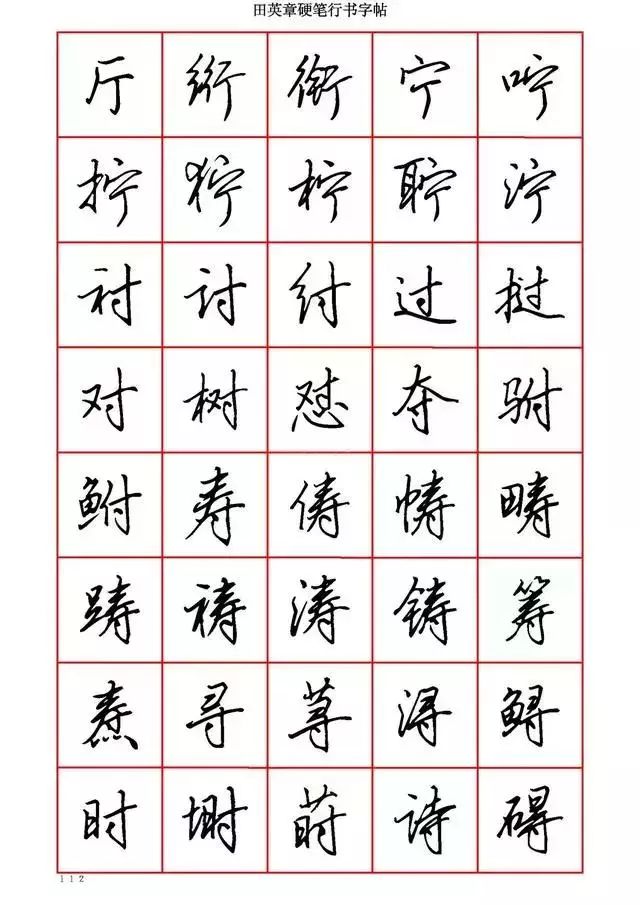 田英章硬笔行书字帖
厅 绗 衔 宁 咛
拧 狞 柠 聍 泞
衬 讨 纣 过 挞
对 树 怼 夺 驸
鲋 寿 俦 帱 畴
踌 祷 涛 铸 筹
焘 寻 荨 浔 鲟
时 埘 莳 诗 碍
112